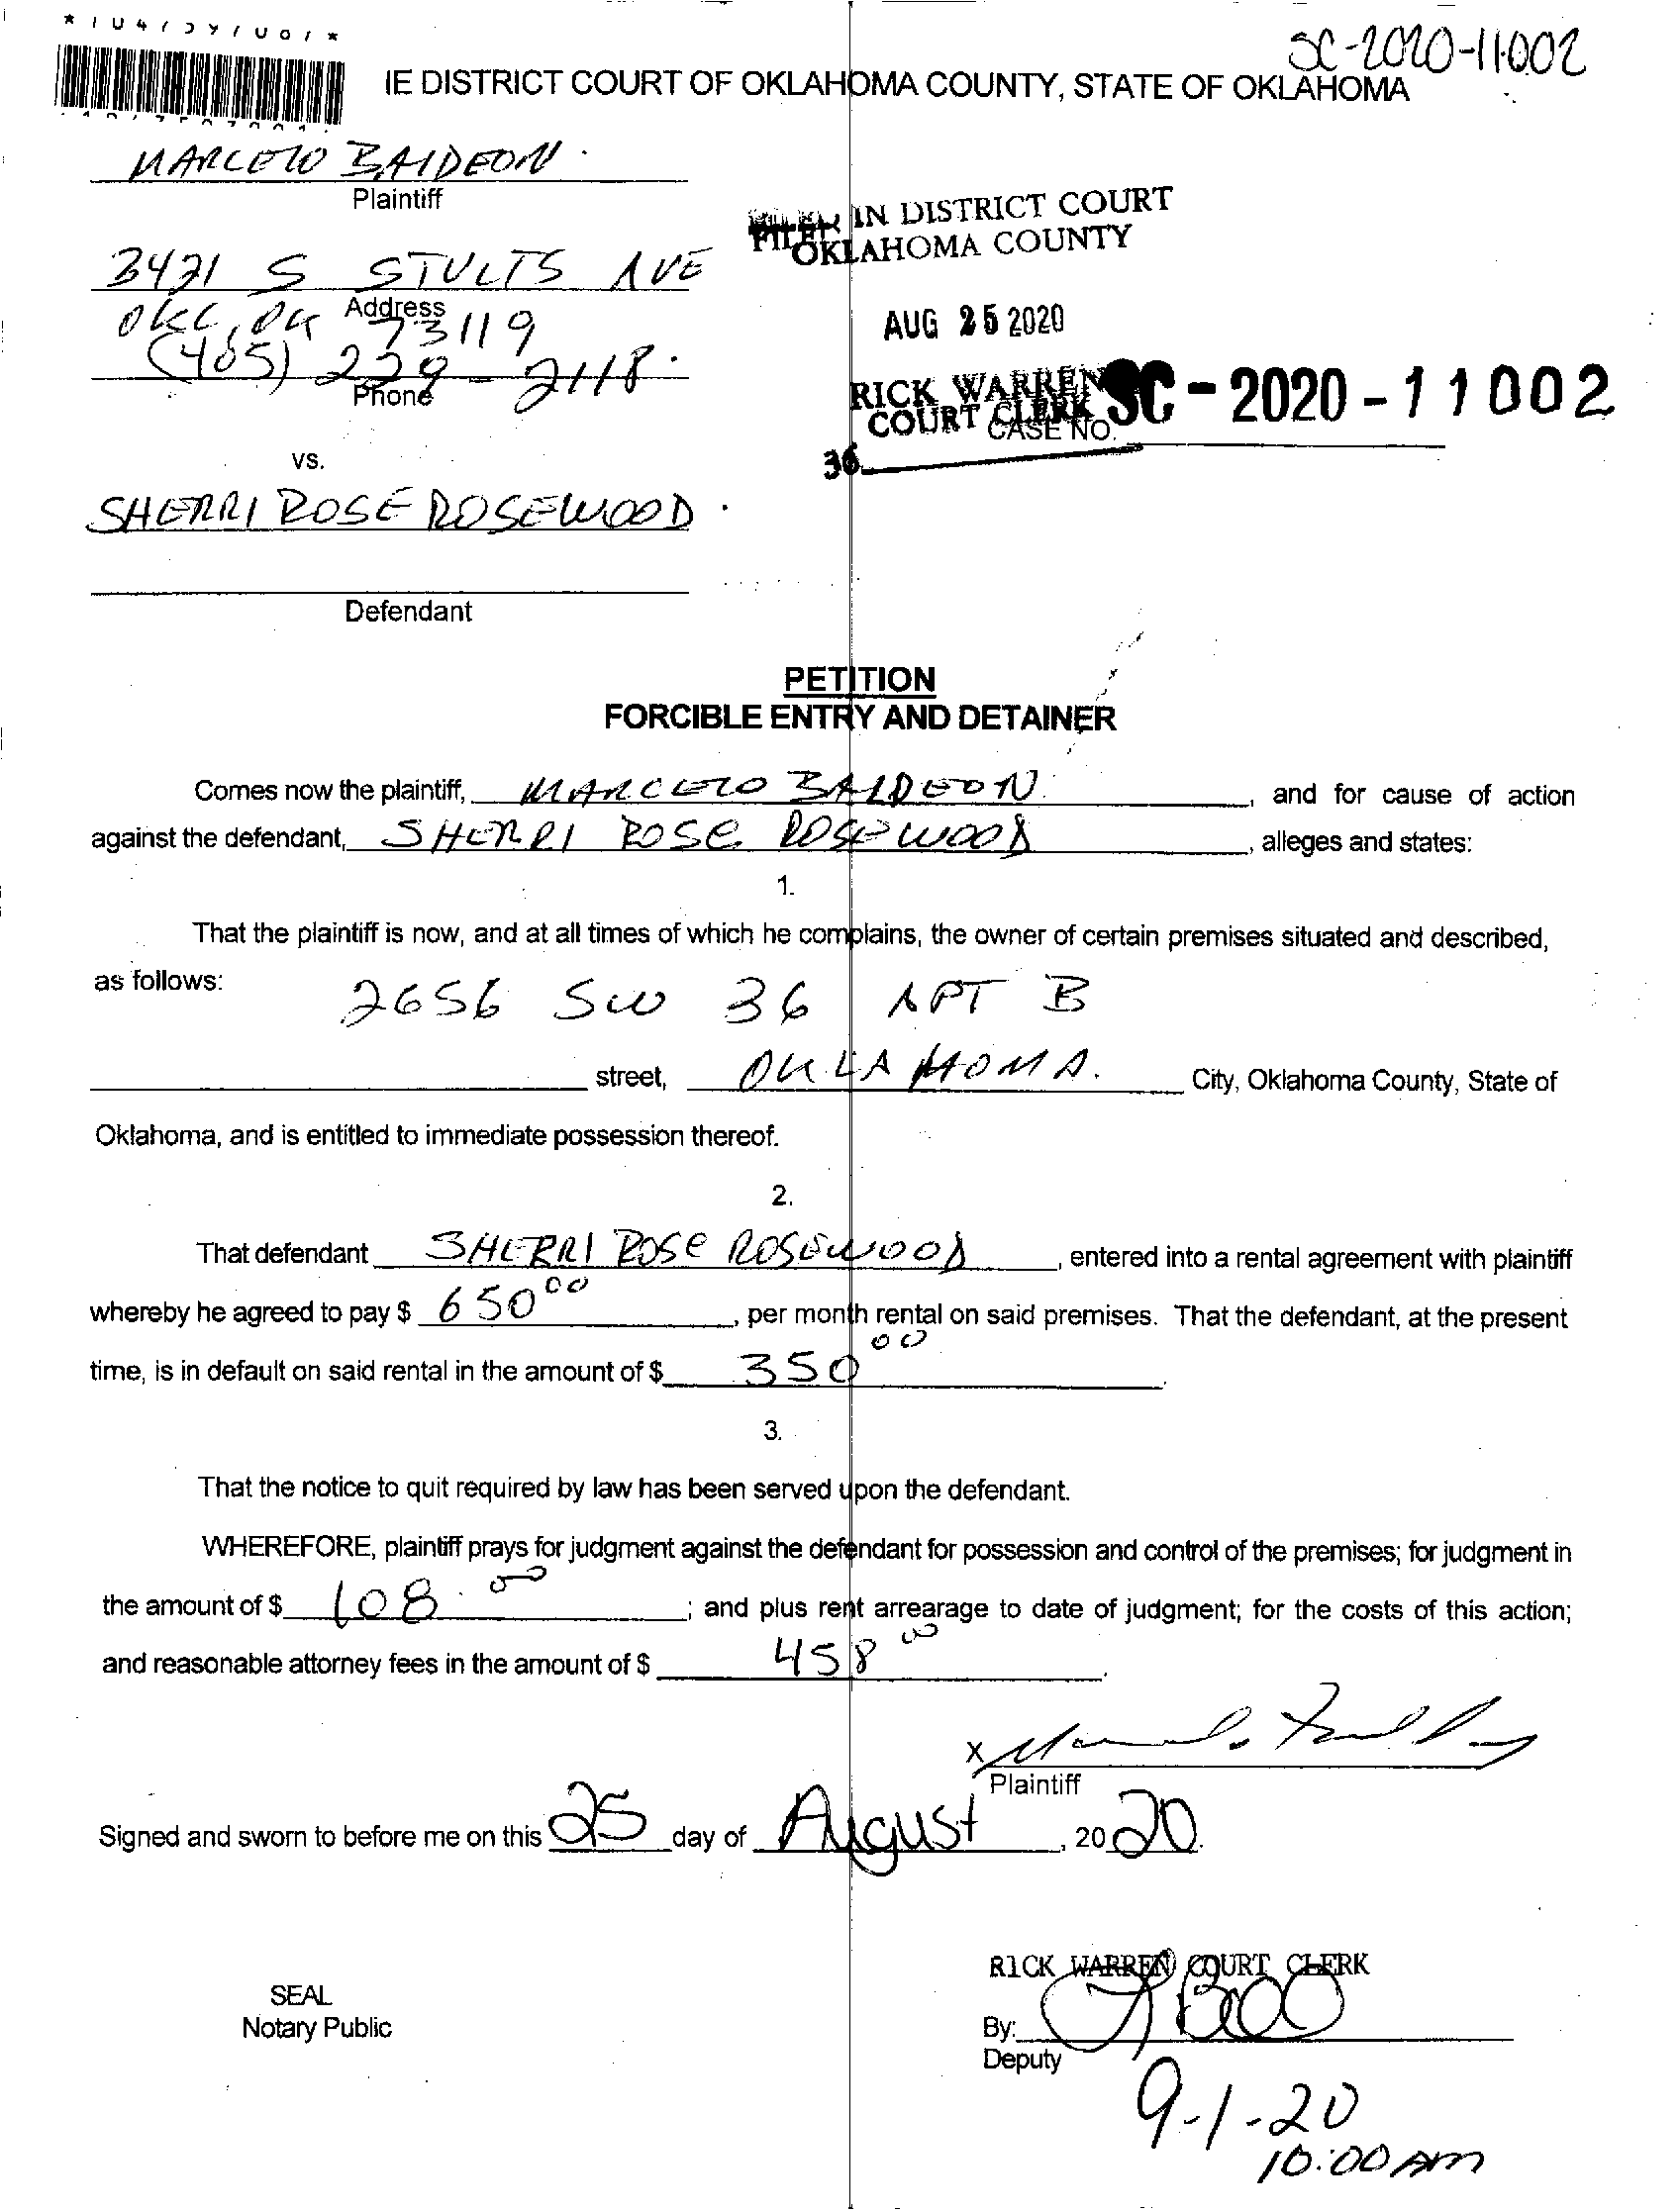 SC-2020-11002
IE DISTRICT COURT OF OKLAHOMA COUNTY, STATE OF OKLAHOMA
MARCELO BALDEON.
Plaintiff
IN DISTRICT COURT
OKLAHOMA COUNTY
3421 S STULTS AVE
Address
OKC, OK 73119
AUG 25 2020
(405) 229-2118.
Phone
RICK WARREN
COURT CLERK
SC-2020-11002
CASE NO.
36
vs.
SHERRI ROSE ROSEWOOD.
Defendant
PETITION
FORCIBLE ENTRY AND DETAINER
Comes now the plaintiff, MARCELO BALDEON. , and for cause of action
against the defendant, SHERRI ROSE ROSEWOOD , alleges and states:
1.
That the plaintiff is now, and at all times of which he complains, the owner of certain premises situated and described,
as follows: 2656 SW 36 APT B
street, OKLAHOMA. City, Oklahoma County, State of
Oklahoma, and is entitled to immediate possession thereof.
2.
That defendant SHERRI ROSE ROSEWOOD , entered into a rental agreement with plaintiff
whereby he agreed to pay $ 650 00 , per month rental on said premises. That the defendant, at the present
time, is in default on said rental in the amount of $ 350 00 .
3.
That the notice to quit required by law has been served upon the defendant.
WHEREFORE, plaintiff prays for judgment against the defendant for possession and control of the premises; for judgment in
the amount of $ 108.00 ; and plus rent arrearage to date of judgment; for the costs of this action;
and reasonable attorney fees in the amount of $ 458 00 .
x
Plaintiff
Signed and sworn to before me on this 25 day of August , 2020.
RICK WARREN COURT CLERK
SEAL
Notary Public
By:
Deputy
9-1-20
10:00 AM